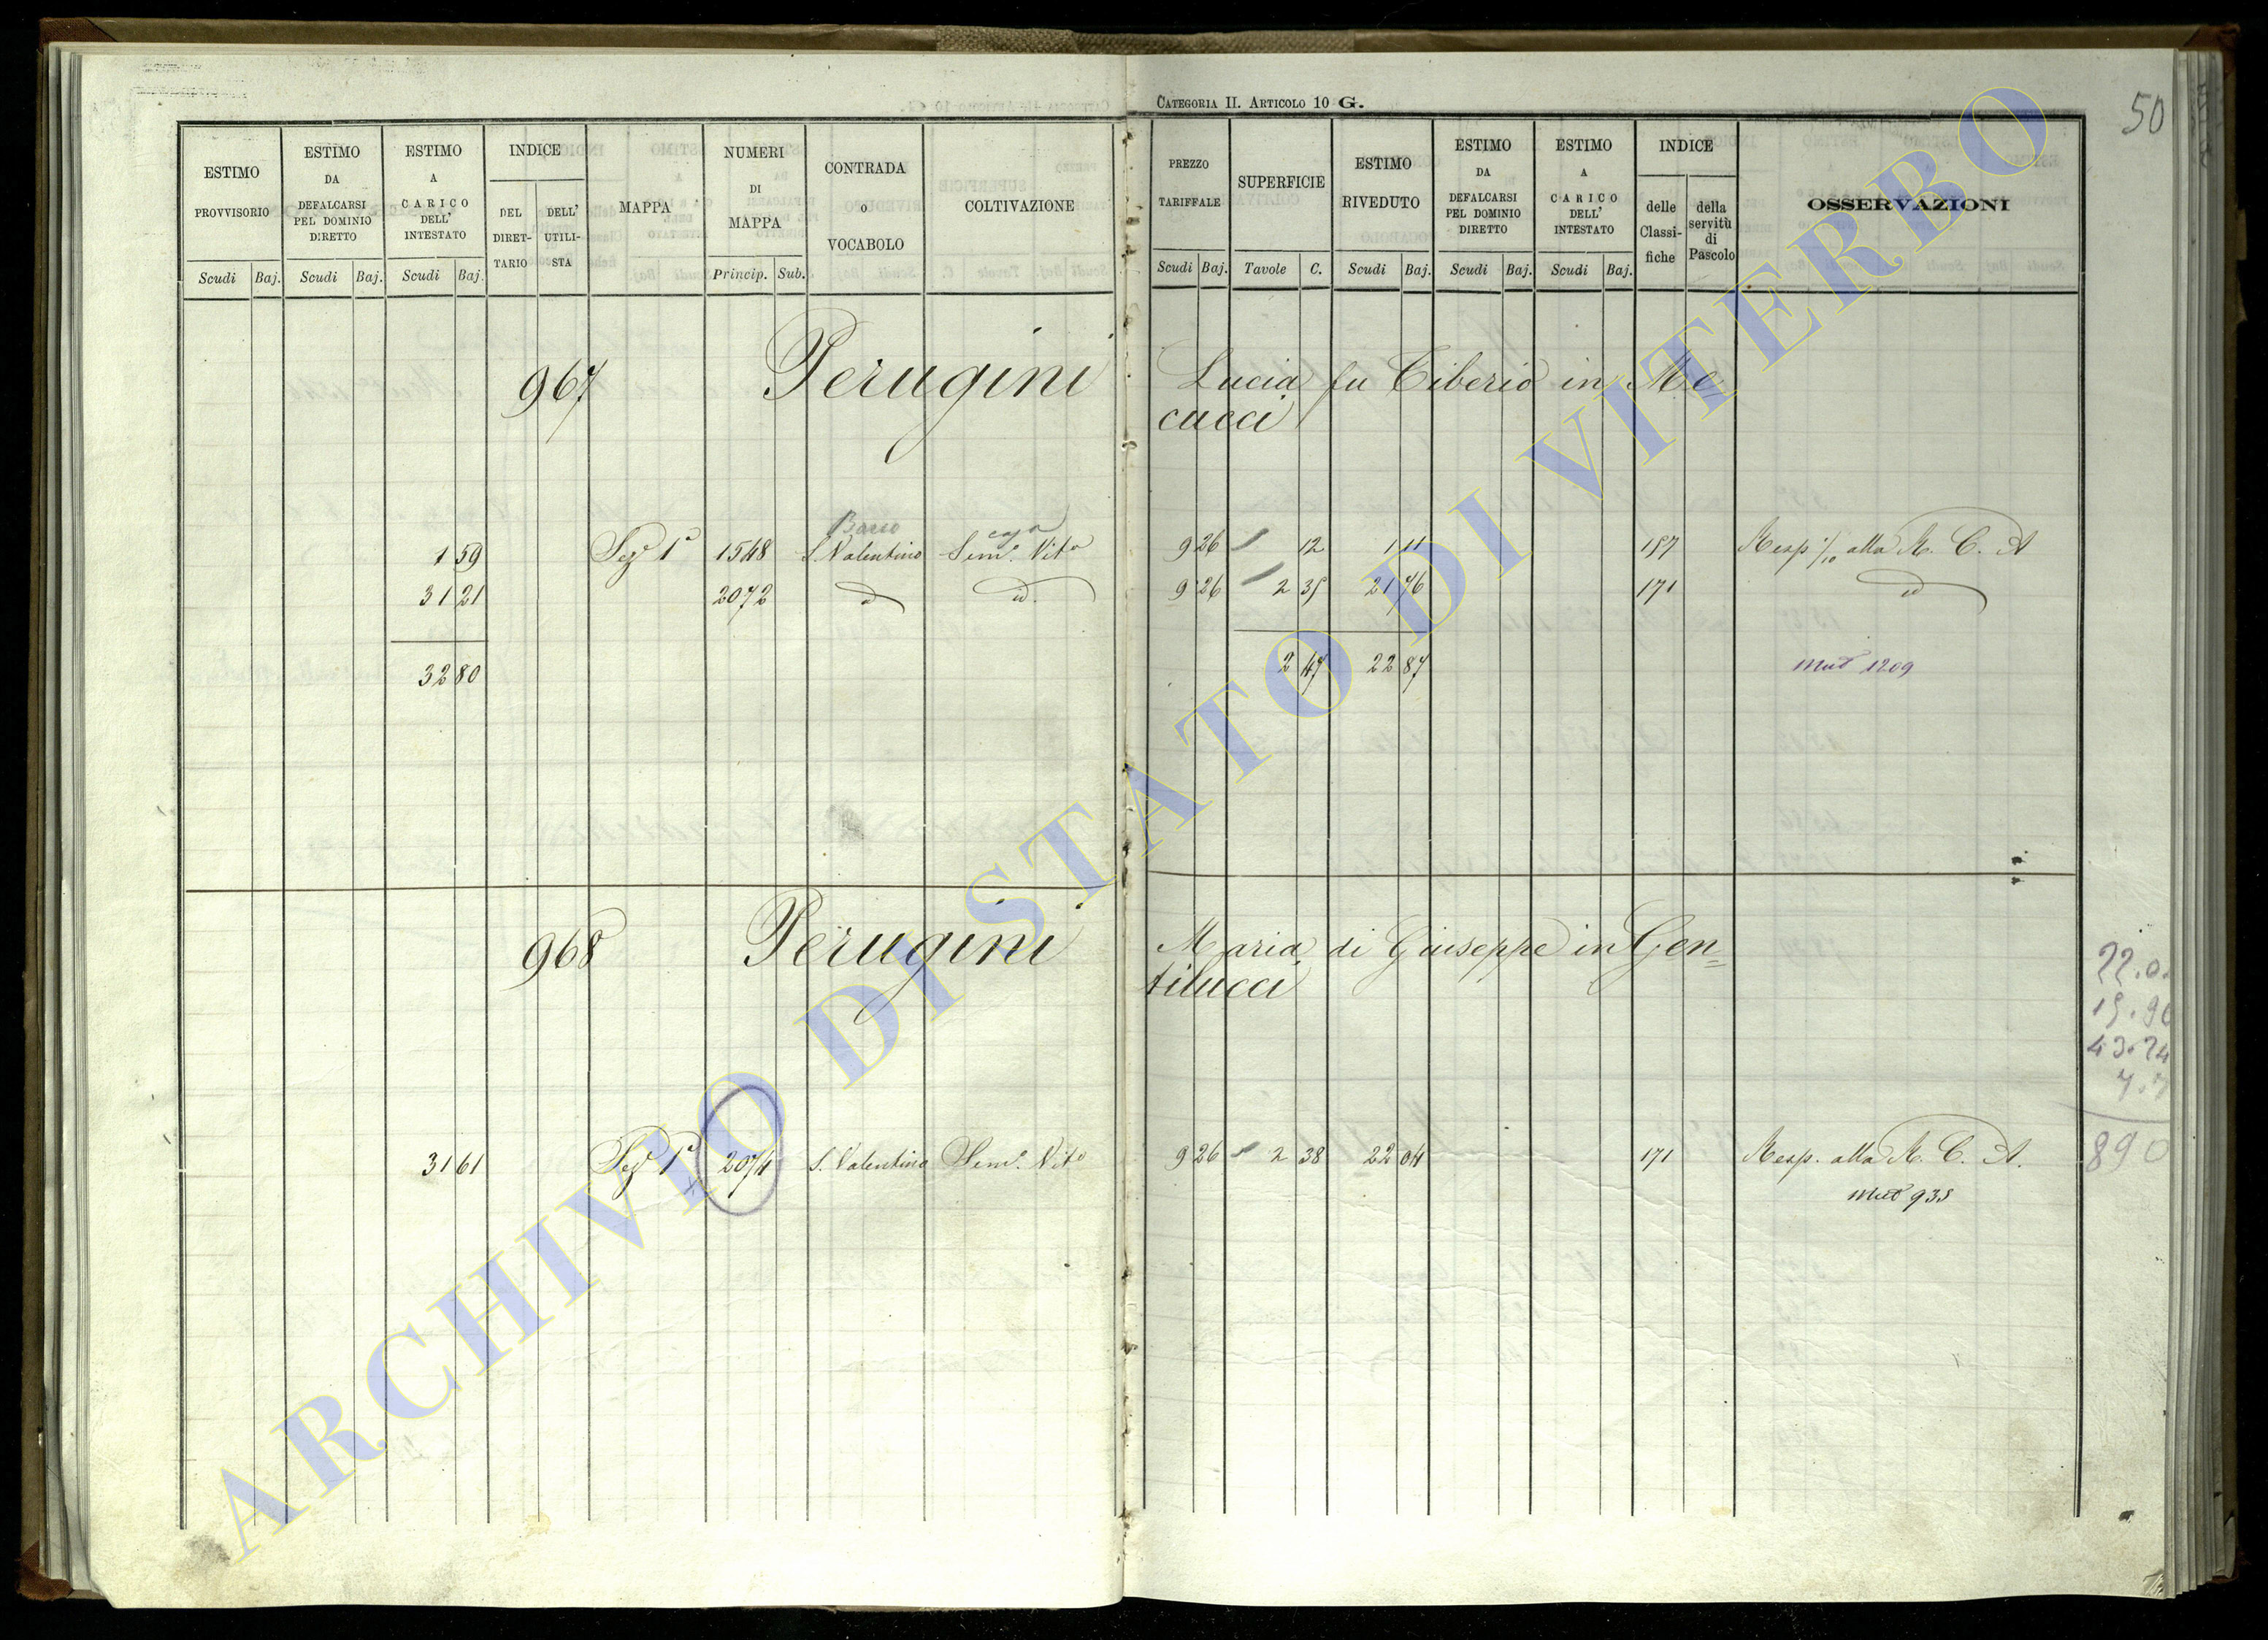 CATEGORIA II. ARTICOLO 10 G.
50
ESTIMO PROVVISORIO
Scudi Baj.
ESTIMO DA DEFALCARSI PEL DOMINIO DIRETTO
Scudi Baj.
ESTIMO A CARICO DELL' INTESTATO
Scudi Baj.
INDICE
DEL DIRET-TARIO
DELL' UTILI-STA
MAPPA
NUMERI DI MAPPA
Princip. Sub.
CONTRADA o VOCABOLO
COLTIVAZIONE
PREZZO TARIFFALE
Scudi Baj.
SUPERFICIE
Tavole C.
ESTIMO RIVEDUTO
Scudi Baj.
ESTIMO DA DEFALCARSI PEL DOMINIO DIRETTO
Scudi Baj.
ESTIMO A CARICO DELL' INTESTATO
Scudi Baj.
INDICE
delle Classi-fiche
della servitù di Pascolo
OSSERVAZIONI
967 Perugini Lucia fu Tiberio in Me=
cucci
1 59 Sez. 1ª 1548 S. Valentino Sem. Vito 9 26 12 1 11 157 Resp. alla R. C. A
31 21 2072 id id. 9 26 2 35 21 76 171 id
32 80 2 47 22 87 mut 1209
968 Perugini Maria di Giuseppe in Gen=
tilucci
22.0
15.96
43.24
890
31 61 Sez. 1ª 2074 S. Valentino Sem. Vito 9 26 2 38 22 04 171 Resp. alla R. C. A.
mut 935
ARCHIVIO DI STATO DI VITERBO